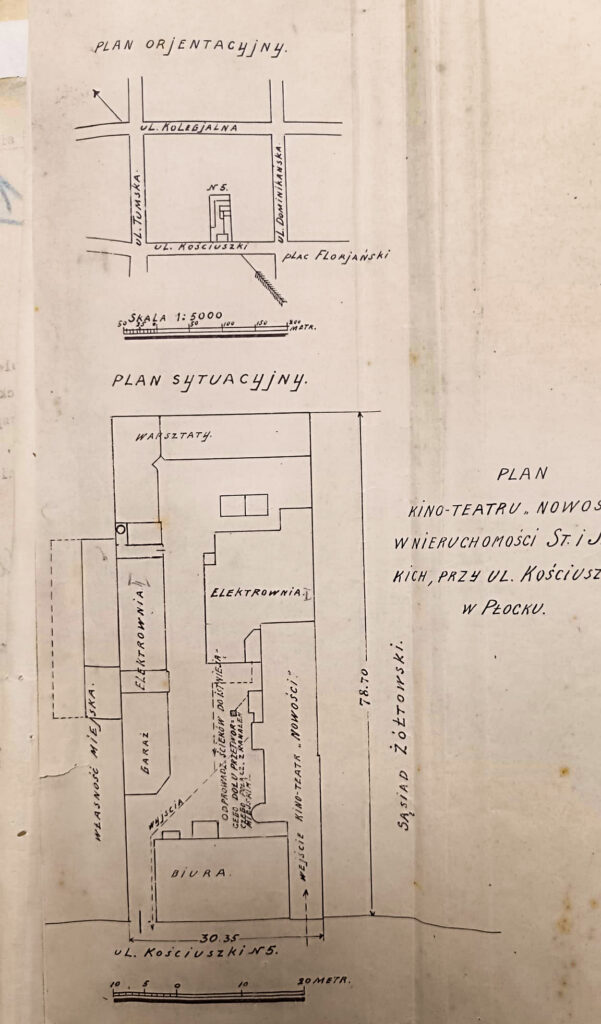 PLAN ORJENTACYJNY.
UL. KOLEGJALNA
UL. TUMSKA.
UL. DOMINIKAŃSKA
N 5.
UL. KOŚCIUSZKI
PLAC FLORJAŃSKI
SKALA 1:5000
50 25 0 50 100 150 200
METR.
PLAN SYTUACYJNY.
WARSZTATY.
ELEKTROWNIA II
ELEKTROWNIA I
GARAŻ
WŁASNOŚĆ MIEJSKA.
WYJŚCIA
ODPROWADZ. ŚCIEKÓW DO ISTNIEJĄ-
CEGO DOŁU PRZETWOR-
CZEGO POŁĄCZ. Z KANAŁEM
MIEJSKIM
WEJŚCIE KINO-TEATR „NOWOŚCI."
78.70
SĄSIAD ŻÓŁTOWSKI.
BIURA.
30.35
UL. KOŚCIUSZKI N 5.
10 5 0 10 20 METR.
PLAN
KINO-TEATRU „NOWOŚ
W NIERUCHOMOŚCI ST. i J
KICH, PRZY UL. KOŚCIUSZ
W PŁOCKU.